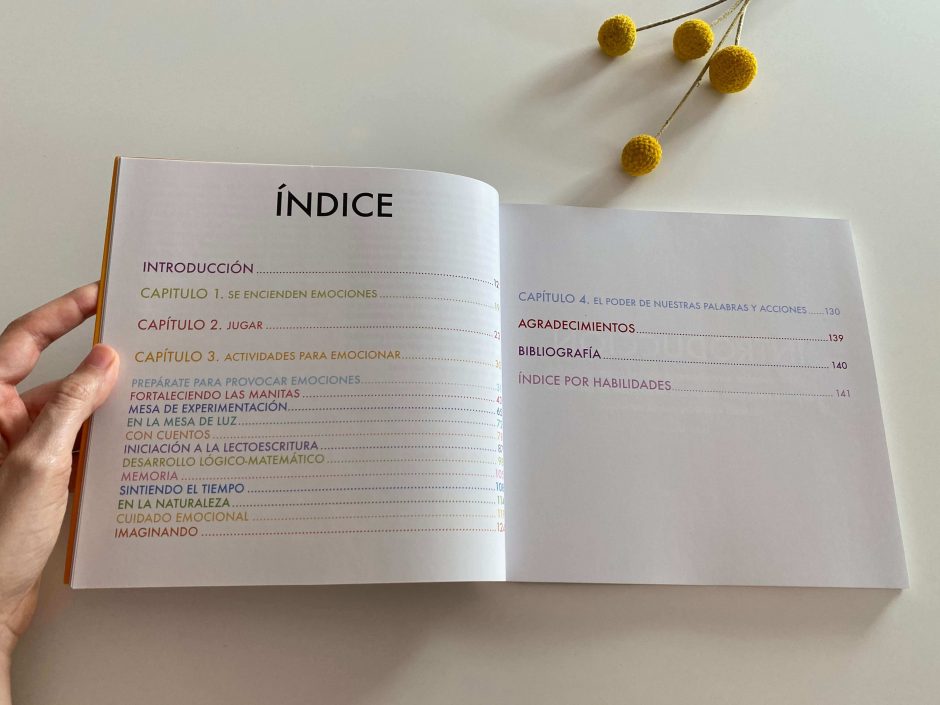 ÍNDICE
INTRODUCCIÓN........12
CAPITULO 1. SE ENCIENDEN EMOCIONES........
CAPÍTULO 2. JUGAR........23
CAPÍTULO 3. ACTIVIDADES PARA EMOCIONAR........
PREPÁRATE PARA PROVOCAR EMOCIONES........
FORTALECIENDO LAS MANITAS........
MESA DE EXPERIMENTACIÓN........
EN LA MESA DE LUZ........
CON CUENTOS........
INICIACIÓN A LA LECTOESCRITURA........
DESARROLLO LÓGICO-MATEMÁTICO........
MEMORIA........
SINTIENDO EL TIEMPO........108
EN LA NATURALEZA........114
CUIDADO EMOCIONAL........
IMAGINANDO........124
CAPÍTULO 4. EL PODER DE NUESTRAS PALABRAS Y ACCIONES......130
AGRADECIMIENTOS........139
BIBLIOGRAFÍA........140
ÍNDICE POR HABILIDADES........141